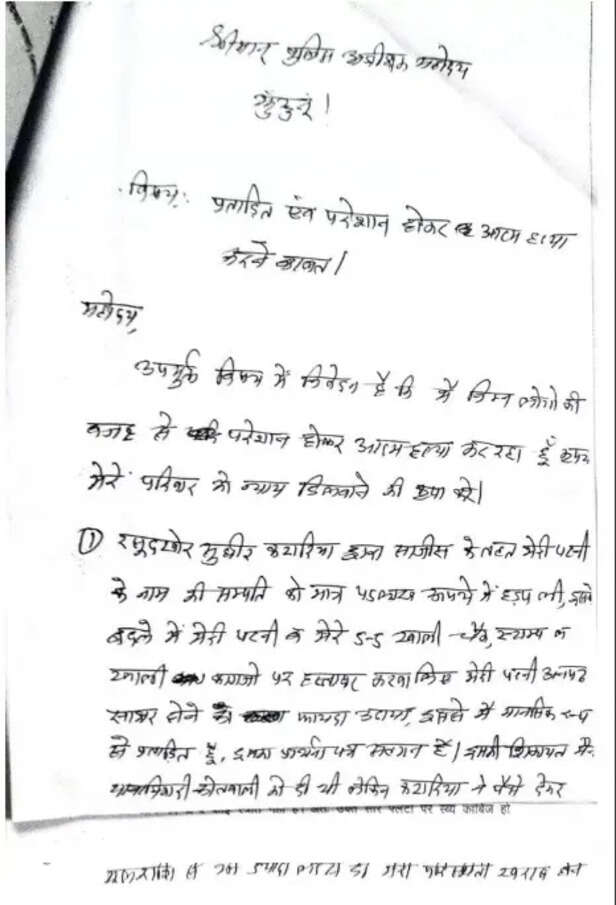 श्रीमान् पुलिस अधीक्षक महोदय
झुंझुनूं!
विषय:- प्रताडित एंव परेशान होकर आत्म हत्या
करने बाबत।
महोदय,
उपर्युक्त विषय में निवेदन है कि मैं निम्न लोगो की
वजह से परेशान होकर आत्महत्या कर रहा हूँ कृपया
मेरे परिवार को न्याय दिलवाने की कृपा करे।
① सूदखोर सुधीर कटारिया द्वारा साजीस के तहत मेरी पत्नी
के नाम की सम्पति को मात्र रूपये में हड़प ली, इसके
बदले में मेरी पत्नी व मेरे 5-5 खाली चैक, स्टाम्प व
खाली कागजो पर हस्ताक्षर करवा लिए मेरी पत्नी अनपढ
साक्षर होने का फायदा उठाया, इससे मैं मानसिक रूप
से प्रताडित हूँ, इसका प्रार्थना पत्र सलंग्न है। इसकी शिकायत मैंने
थानाधिकारी कोतवाली को दी थी लेकिन कटारिया ने पैसे देकर
पर स्वयं काबिज हो